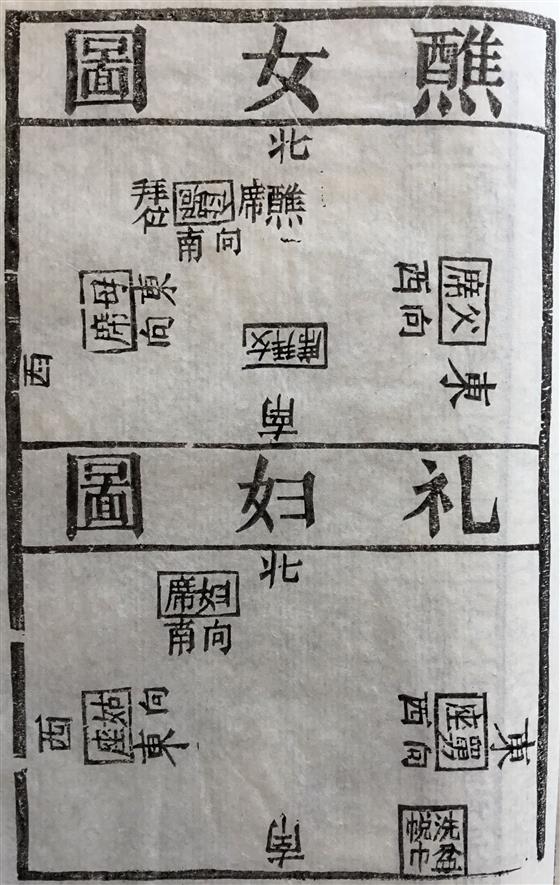 醮女圖
北
醮席
拜位
南向
父席
西向
東
母席
東向
西
女拜席
南
礼妇圖
北
妇席
南向
舅座
西向
東
姑座
東向
西
南
洗盆
帨巾